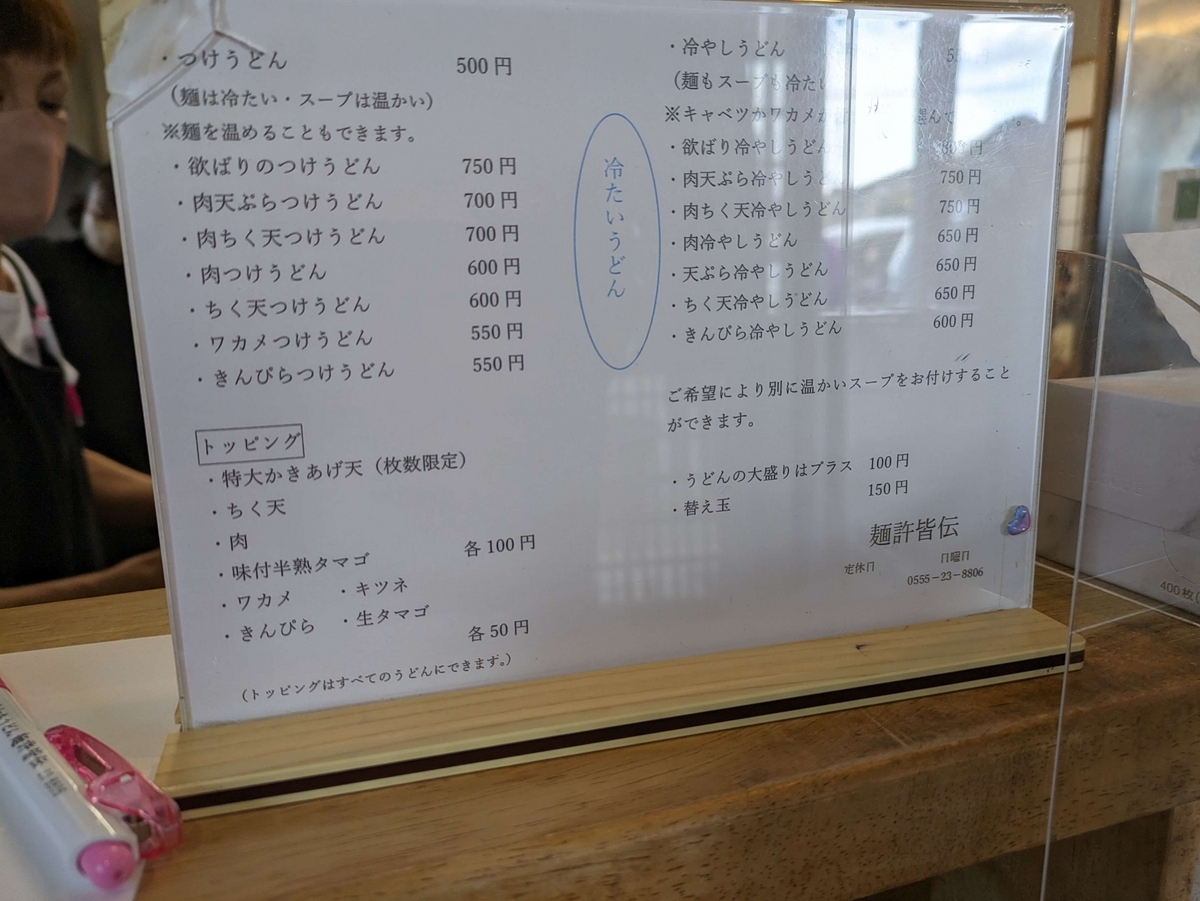 ・つけうどん 500円
（麺は冷たい・スープは温かい）
※麺を温めることもできます。
・欲ばりのつけうどん 750円
・肉天ぷらつけうどん 700円
・肉ちく天つけうどん 700円
・肉つけうどん 600円
・ちく天つけうどん 600円
・ワカメつけうどん 550円
・きんぴらつけうどん 550円
トッピング
・特大かきあげ天（枚数限定）
・ちく天
・肉
・味付半熟タマゴ 各100円
・ワカメ ・キツネ
・きんぴら ・生タマゴ
各50円
（トッピングはすべてのうどんにできます。）
冷たいうどん
・冷やしうどん
（麺もスープも冷たい
※キャベツかワカメか
・欲ばり冷やしうどん
・肉天ぷら冷やしうどん 750円
・肉ちく天冷やしうどん 750円
・肉冷やしうどん 650円
・天ぷら冷やしうどん 650円
・ちく天冷やしうどん 650円
・きんぴら冷やしうどん 600円
ご希望により別に温かいスープをお付けすること
ができます。
・うどんの大盛りはプラス 100円
・替え玉 150円
麺許皆伝
定休日 日曜日
0555−23−8806
400枚(